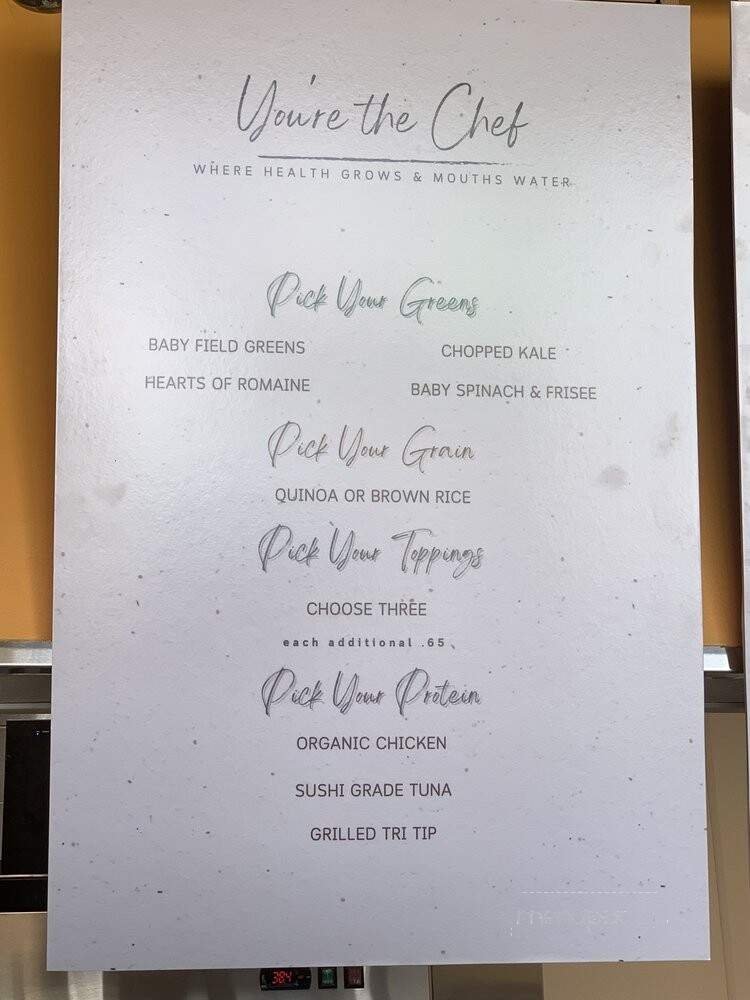 You're the Chef
WHERE HEALTH GROWS & MOUTHS WATER
Pick Your Greens
BABY FIELD GREENS
CHOPPED KALE
HEARTS OF ROMAINE
BABY SPINACH & FRISEE
Pick Your Grain
QUINOA OR BROWN RICE
Pick Your Toppings
CHOOSE THREE
each additional .65
Pick Your Protein
ORGANIC CHICKEN
SUSHI GRADE TUNA
GRILLED TRI TIP